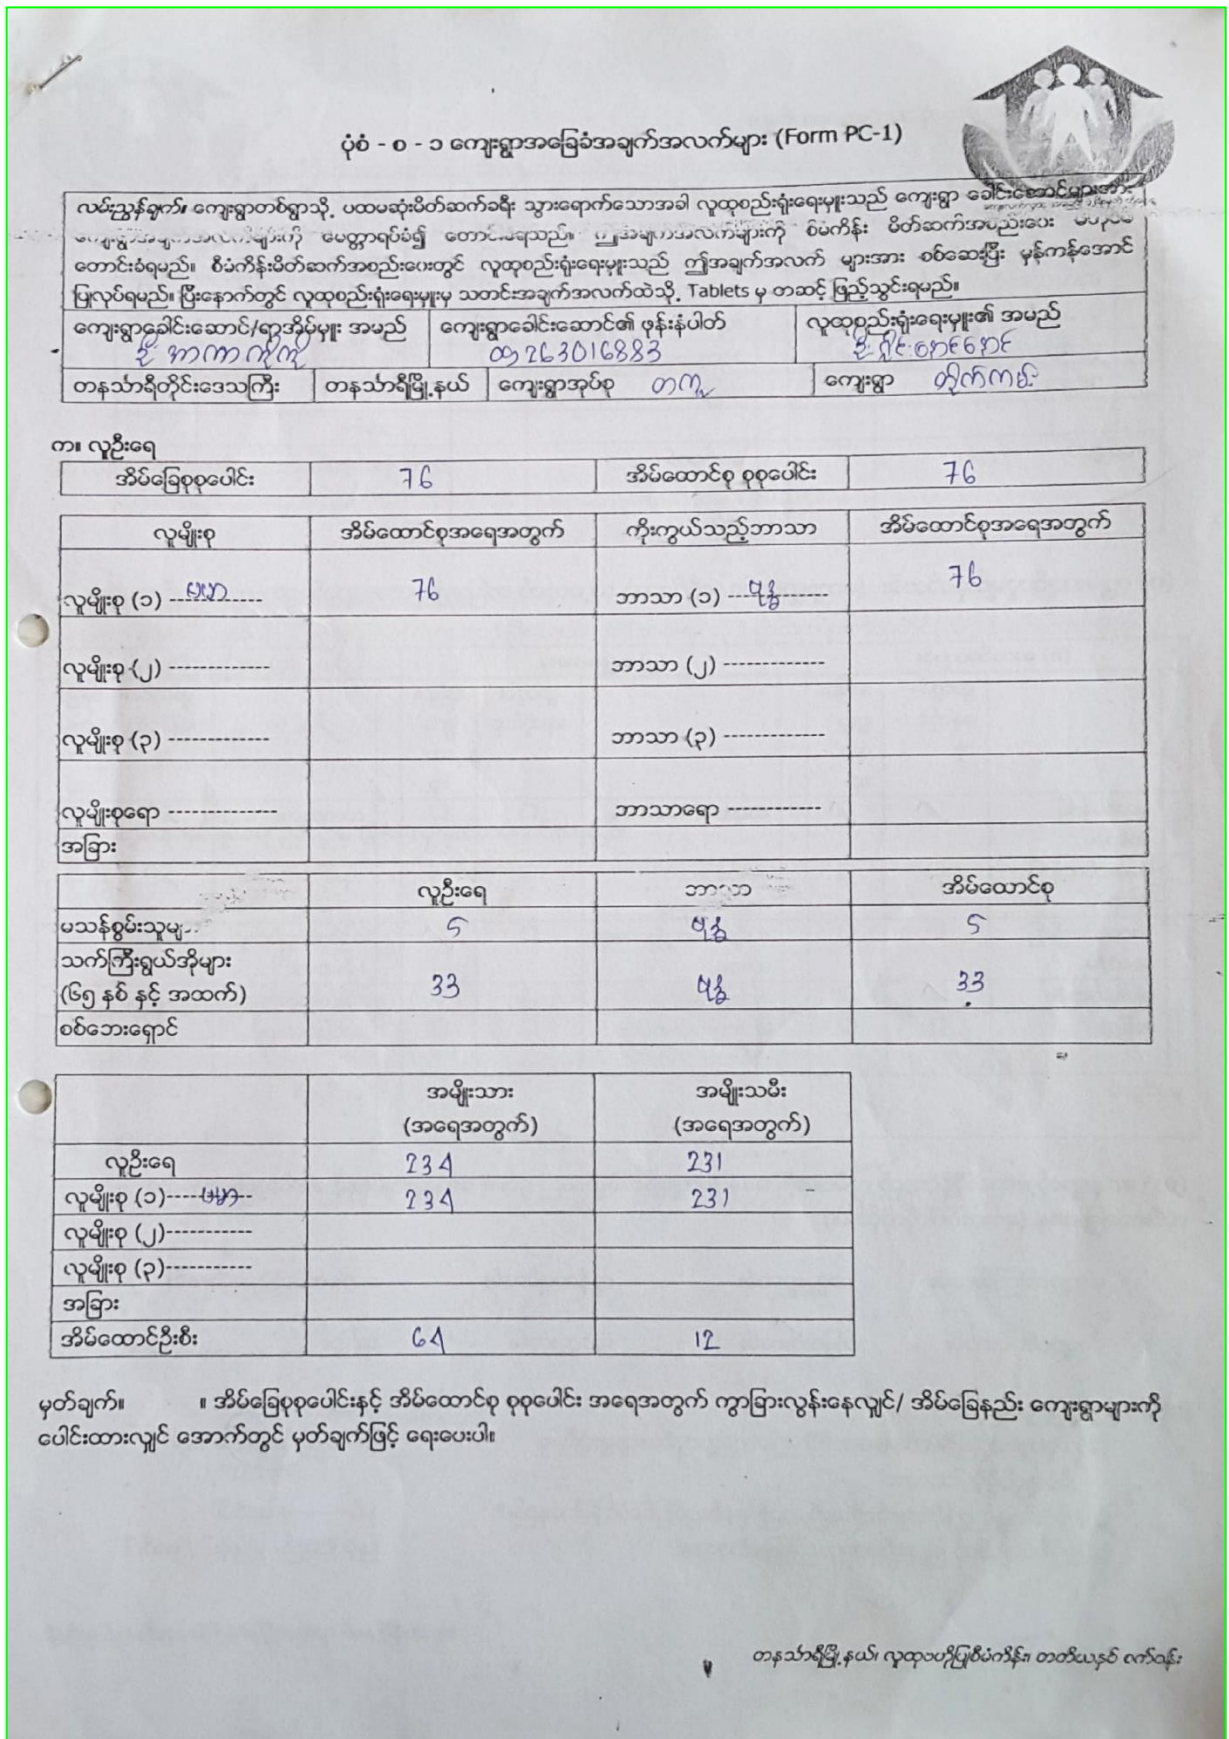 ပုံစံ - စ - ၁ ကျေးရွာအခြေခံအချက်အလက်များ (Form PC-1)
လမ်းညွှန်ချက်။ ကျေးရွာတစ်ရွာသို့ ပထမဆုံးမိတ်ဆက်ခရီး သွားရောက်သောအခါ လူထုစည်းရုံးရေးမှူးသည် ကျေးရွာ ခေါင်းဆောင်များအား
ကျေးရွာအချက်အလက်များကို မေတ္တာရပ်ခံ၍ တောင်းခံရသည်။ ဤအချက်အလက်များကို စီမံကိန်း မိတ်ဆက်အစည်းဝေး
တောင်းခံရမည်။ စီမံကိန်းမိတ်ဆက်အစည်းဝေးတွင် လူထုစည်းရုံးရေးမှူးသည် ဤအချက်အလက် များအား စစ်ဆေးပြီး မှန်ကန်အောင်
ပြုလုပ်ရမည်။ ပြီးနောက်တွင် လူထုစည်းရုံးရေးမှူးမှ သတင်းအချက်အလက်ထဲသို့ Tablets မှ တဆင့် ဖြည့်သွင်းရမည်။
ကျေးရွာခေါင်းဆောင်/ရာအိမ်မှူး အမည် ကျေးရွာခေါင်းဆောင်၏ ဖုန်းနံပါတ် လူထုစည်းရုံးရေးမှူး၏ အမည်
ဦး ကိုကို 09263016883 ဦး
တနင်္သာရီတိုင်းဒေသကြီး တနင်္သာရီမြို့နယ် ကျေးရွာအုပ်စု တကူ ကျေးရွာ တိုက်ကမ်း
က။ လူဦးရေ
အိမ်ခြေစုစုပေါင်း 76 အိမ်ထောင်စု စုစုပေါင်း 76
လူမျိုးစု အိမ်ထောင်စုအရေအတွက် ကိုးကွယ်သည့်ဘာသာ အိမ်ထောင်စုအရေအတွက်
လူမျိုးစု (၁) ဗမာ 76 ဘာသာ (၁) ဗုဒ္ဓ 76
လူမျိုးစု (၂) ------------- ဘာသာ (၂) -------------
လူမျိုးစု (၃) ------------- ဘာသာ (၃) -------------
လူမျိုးစုရော -------------- ဘာသာရော ------------
အခြား
လူဦးရေ ဘာသာ အိမ်ထောင်စု
မသန်စွမ်းသူများ 5 ဗုဒ္ဓ 5
သက်ကြီးရွယ်အိုများ
(၆၅ နှစ် နှင့် အထက်) 33 ဗုဒ္ဓ 33
စစ်ဘေးရှောင်
အမျိုးသား အမျိုးသမီး
(အရေအတွက်) (အရေအတွက်)
လူဦးရေ 234 231
လူမျိုးစု (၁) ဗမာ 234 231
လူမျိုးစု (၂)-----------
လူမျိုးစု (၃)-----------
အခြား
အိမ်ထောင်ဦးစီး 64 12
မှတ်ချက်။ ။ အိမ်ခြေစုစုပေါင်းနှင့် အိမ်ထောင်စု စုစုပေါင်း အရေအတွက် ကွာခြားလွန်းနေလျှင်/ အိမ်ခြေနည်း ကျေးရွာများကို
ပေါင်းထားလျှင် အောက်တွင် မှတ်ချက်ဖြင့် ရေးပေးပါ။
တနင်္သာရီမြို့နယ်၊ လူထုဗဟိုပြုစီမံကိန်း၊ တတိယနှစ် လက်ဝန်း